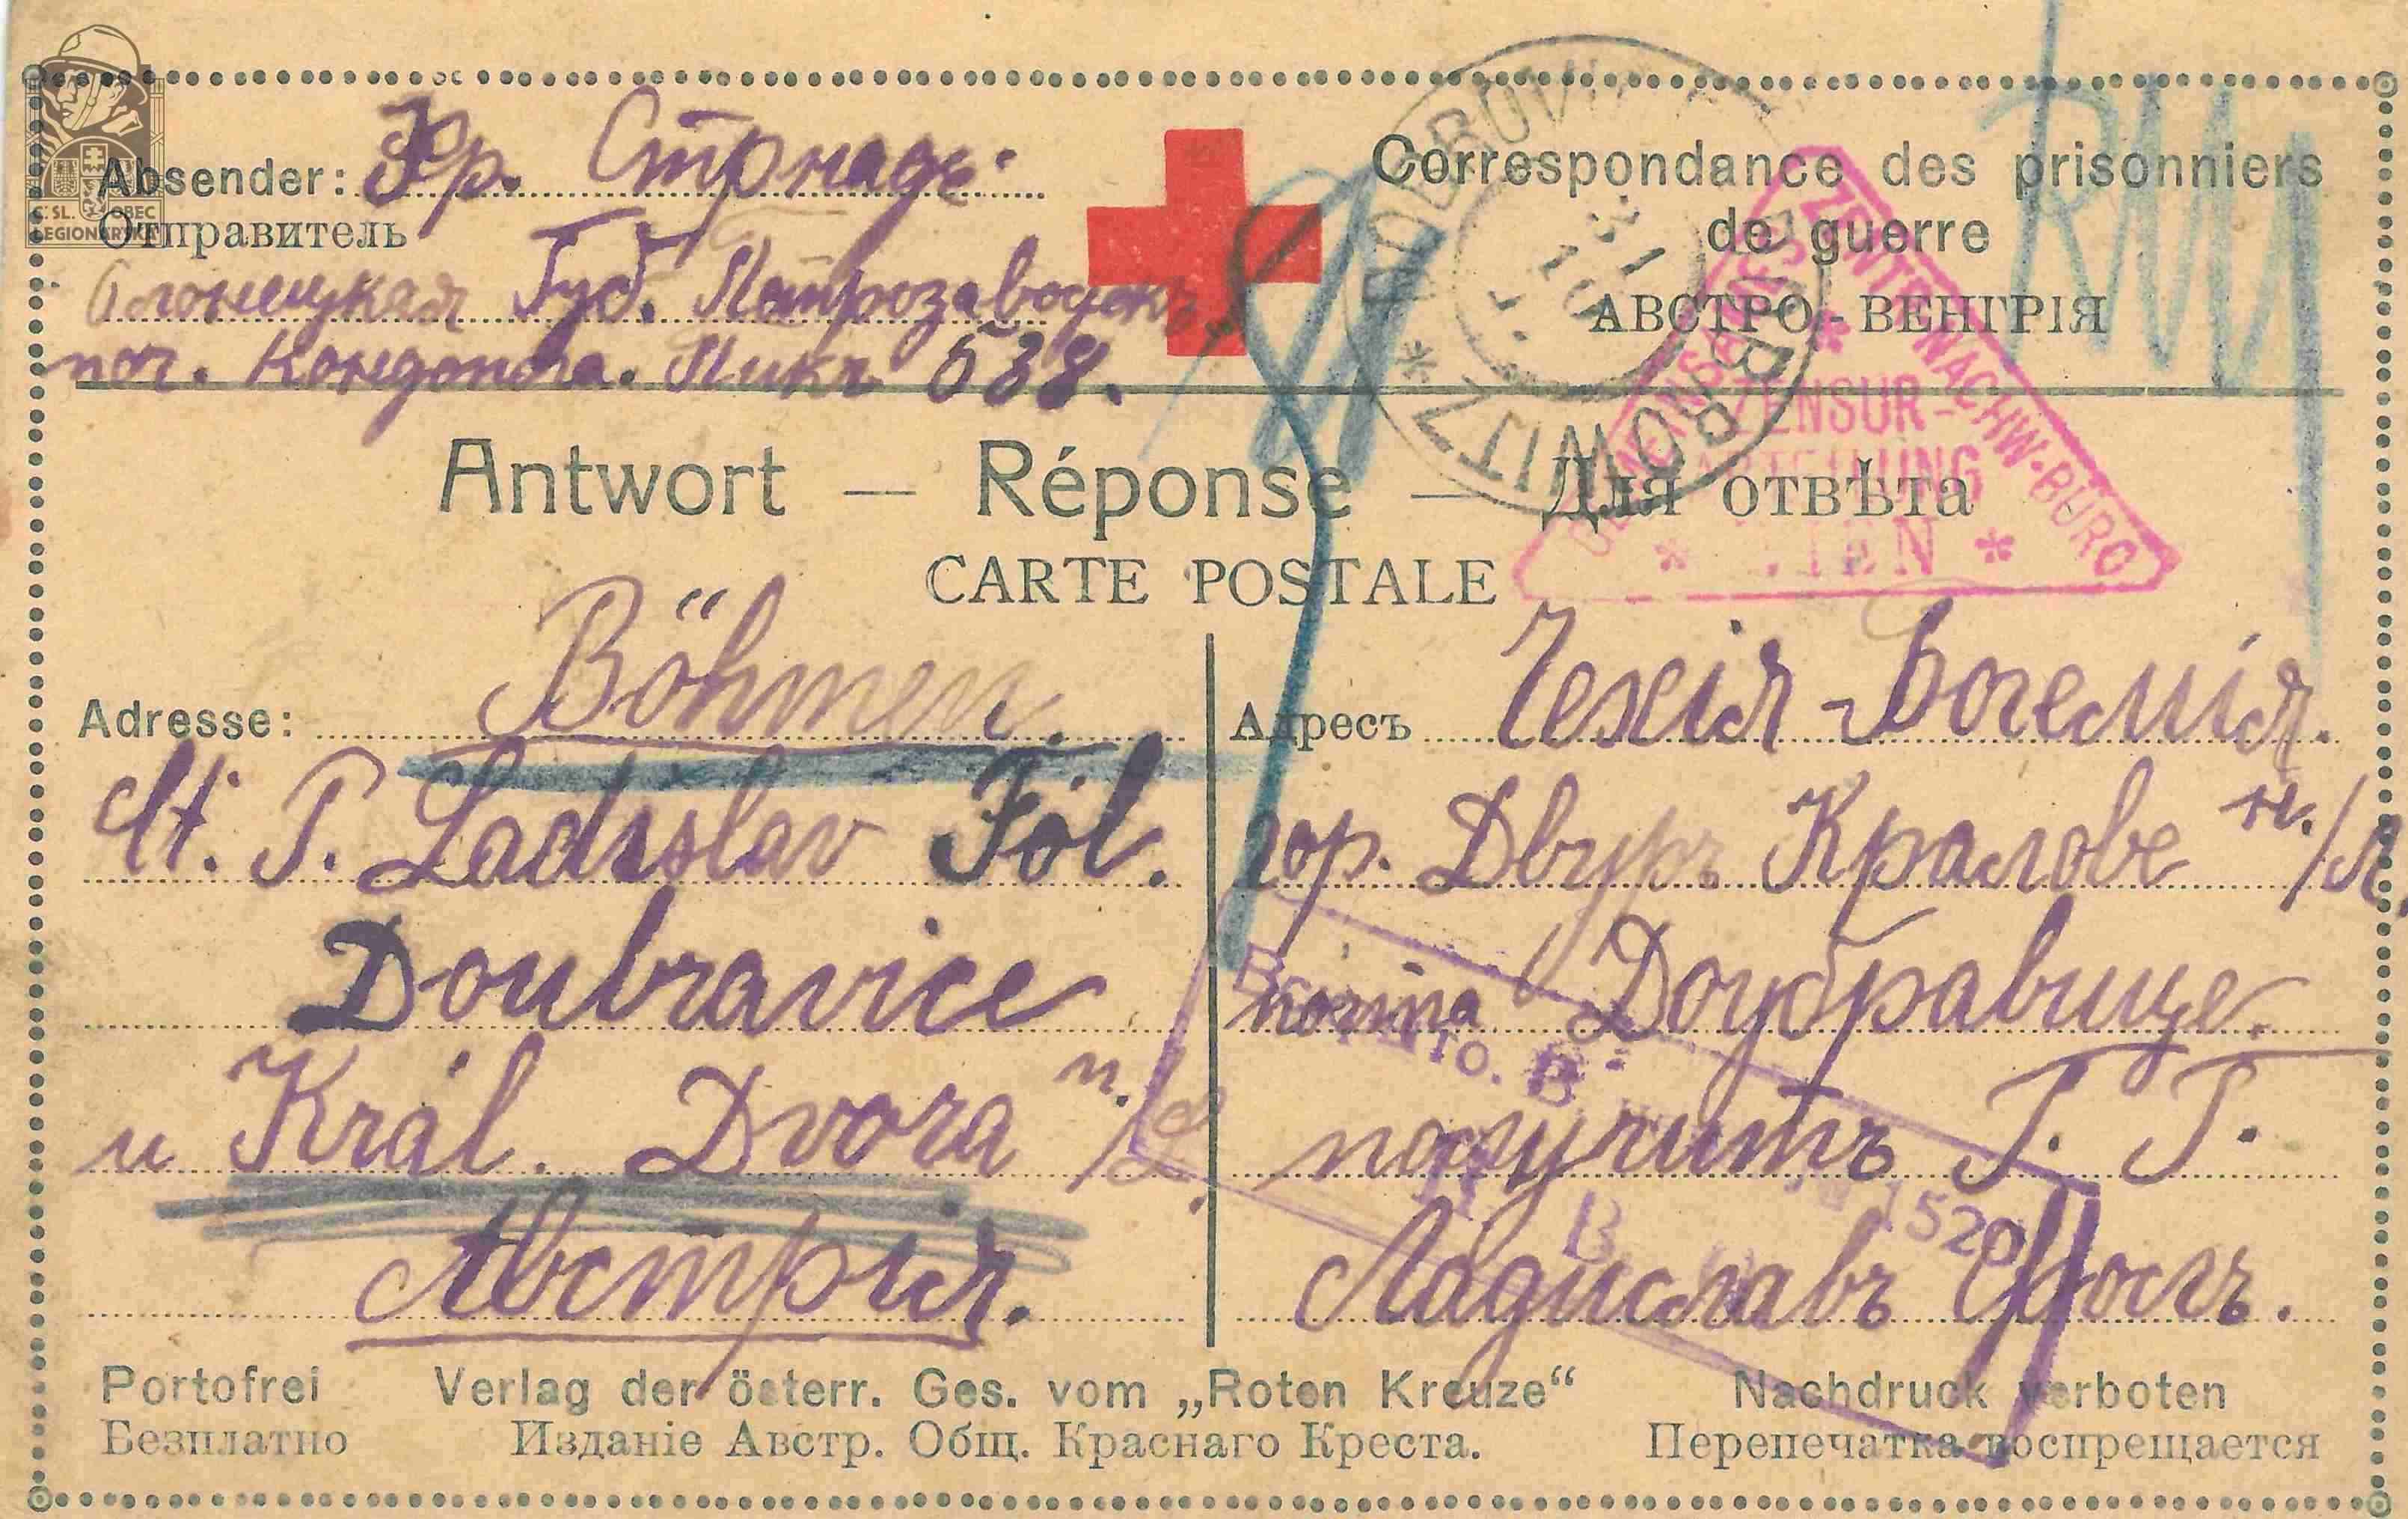 Č.SL. OBEC
LEGIONÁŘSKÁ
Absender: Фр. Стрнадъ.
Отправитель
Олонецкая Губ. Петрозаводскъ
поч. Кондопога. Пикъ 538.
Correspondance des prisonniers
de guerre
АВСТРО-ВЕНГРІЯ
DOUBROWITZ
GEMEINSAMES ZENTR. NACHW.-BÜRO
ZENSUR-
ABTEILUNG
WIEN
Antwort — Réponse — Для отвѣта
CARTE POSTALE
Adresse: Böhmen.
Ladislav Fól.
Doubravice
u Král. Dvora n./L.
Австрия.
Адресъ Чехія-Богемія.
гор. Двуръ Кралове н./Л.
почта Доубравице.
получитъ Г. Г.
Ладиславъ Фолъ.
1520
Portofrei Verlag der österr. Ges. vom „Roten Kreuze“ Nachdruck verboten
Безплатно Изданіе Австр. Общ. Краснаго Креста. Перепечатка воспрещается